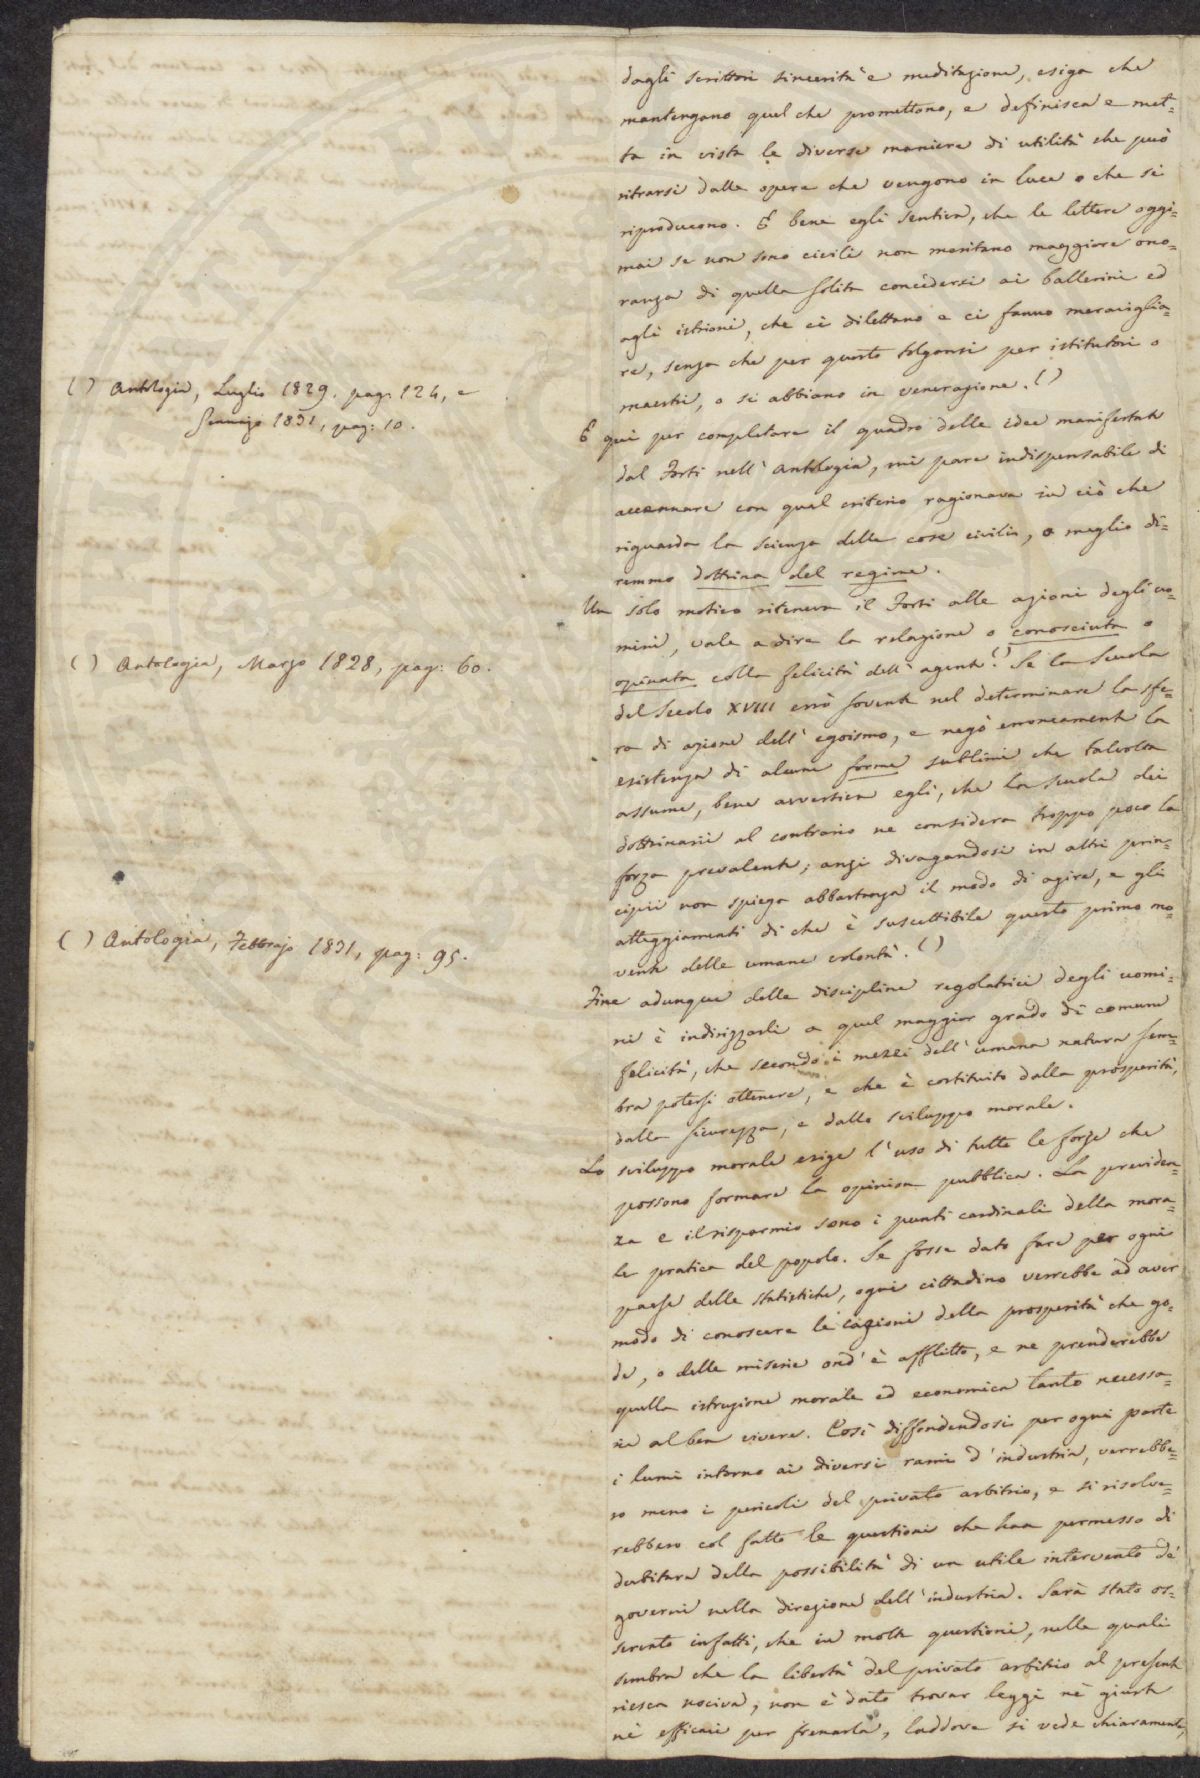 dagli scrittori sincerità e meditazione, esiga che
mantengano quel che promettono, e definisca e met=
ta in vista le diverse maniere di utilità che può
ritrarsi dalle opere che vengono in luce o che si
riproducono. E bene egli sentiva, che le lettere oggi=
mai se non sono civili non meritano maggiore ono=
ranza di quella solita concedersi ai ballerini ed
agli istrioni, che ci dilettano e ci fanno meraviglia=
re, senza che per questo tolgansi per istitutori o
maestri, o si abbiano in venerazione. ( )
( ) Antologia, Luglio 1829. pag. 124, e
Gennajo 1831, pag: 10.
E qui per completare il quadro delle idee manifestate
dal Forti nell'Antologia, mi pare indispensabile di
accennare con qual criterio ragionava in ciò che
riguarda la scienza delle cose civili, o meglio di=
remmo dottrina del regime.
Un solo motivo riteneva il Forti alle azioni degli uo=
mini, vale a dire la relazione o conosciuta o
opinata colla felicità dell'agente. ( ) Se la Scuola
( ) Antologia, Marzo 1828, pag: 60.
del Secolo XVIII errò sovente nel determinare la sfe=
ra di azione dell'egoismo, e negò erroneamente la
esistenza di alcune forme sublimi che talvolta
assume, bene avvertiva egli, che la scuola dei
dottrinarii al contrario ne considera troppo poco la
forza prevalente; anzi divagandosi in altri prin=
cipii non spiega abbastanza il modo di agire, e gli
atteggiamenti di che è suscettibile questo primo mo=
vente delle umane volontà. ( )
( ) Antologia, Febbrajo 1831, pag: 95.
Fine adunque delle discipline regolatrici degli uomi=
ni è indirizzarli a quel maggior grado di comune
felicità, che secondo i mezzi dell'umana natura sem=
bra potersi ottenere, e che è costituito dalla prosperità,
dalla sicurezza, e dallo sviluppo morale.
Lo sviluppo morale esige l'uso di tutte le forze che
possono formare la opinion pubblica. La previden=
za e il risparmio sono i punti cardinali della mora=
le pratica del popolo. Se fosse dato fare per ogni
paese delle statistiche, ogni cittadino verrebbe ad aver
modo di conoscere le cagioni della prosperità che go=
de, o delle miserie ond'è afflitto, e ne prenderebbe
quella istruzione morale ed economica tanto necessa=
ria al ben vivere. Così diffondendosi per ogni parte
i lumi intorno ai diversi rami d'industria, verrebbe=
ro meno i pericoli del privato arbitrio, e si risolve=
rebbero col fatto le questioni che han permesso di
dubitare della possibilità di un utile intervento de'
governi nella direzione dell'industria. Sarà stato os=
servato infatti, che in molte questioni, nelle quali
sembra che la libertà del privato arbitrio al presente
riesca nociva, non è dato trovar leggi nè giuste
nè efficaci per frenarla, laddove si vede chiaramente,